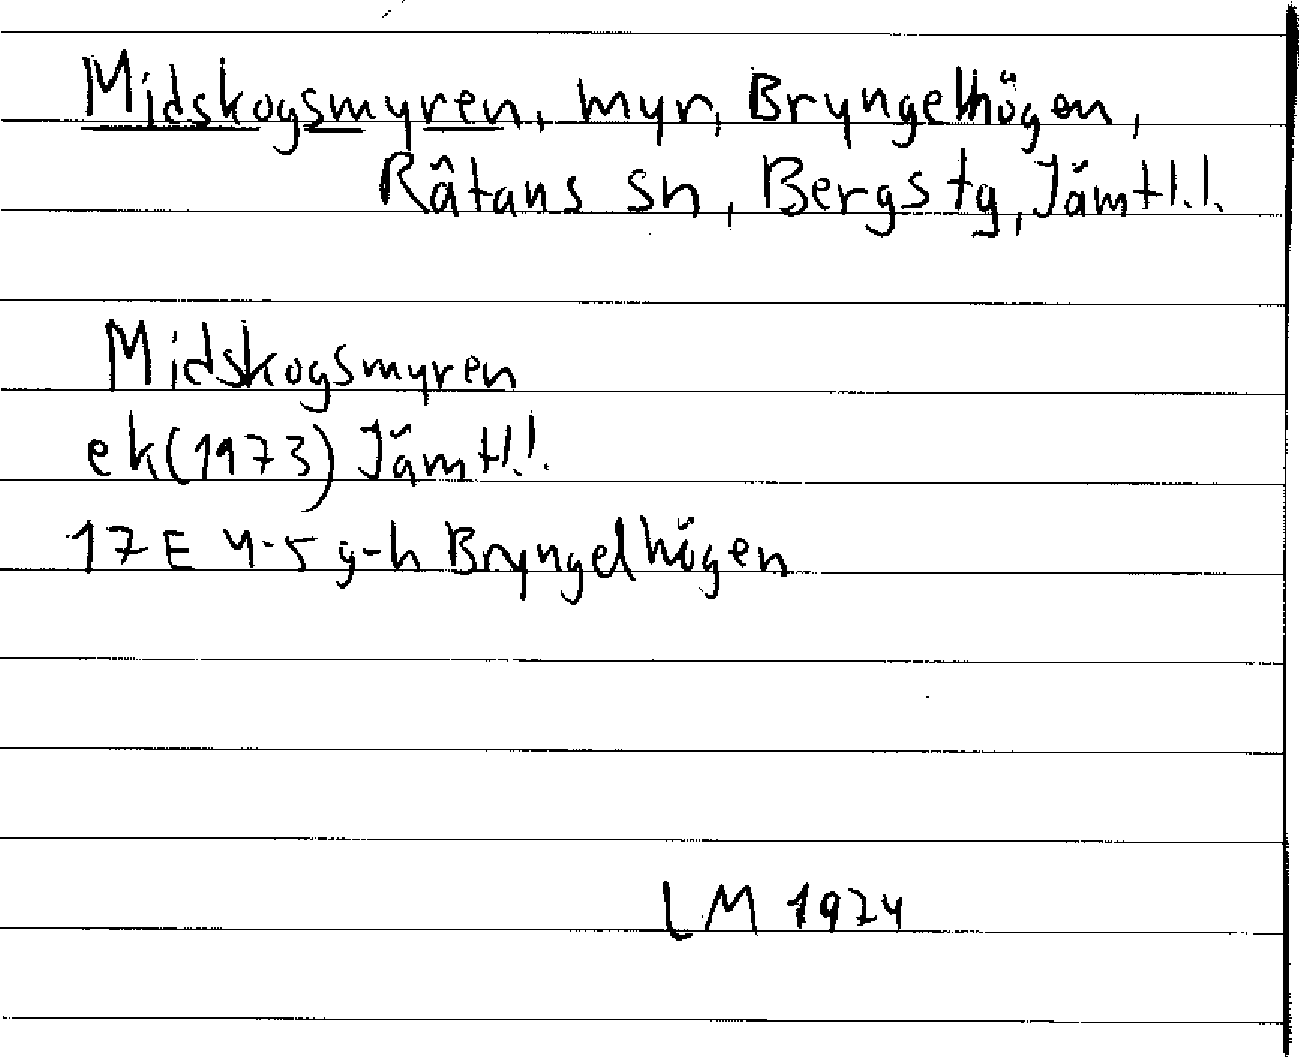 Midskogsmyren, myr, Bryngelhögen,
Råtans sn, Bergs tg, Jämtl.l.
Midskogsmyren
ek(1973) Jämtl.l.
17E 4-5 g-h Bryngelhögen
LM 1974